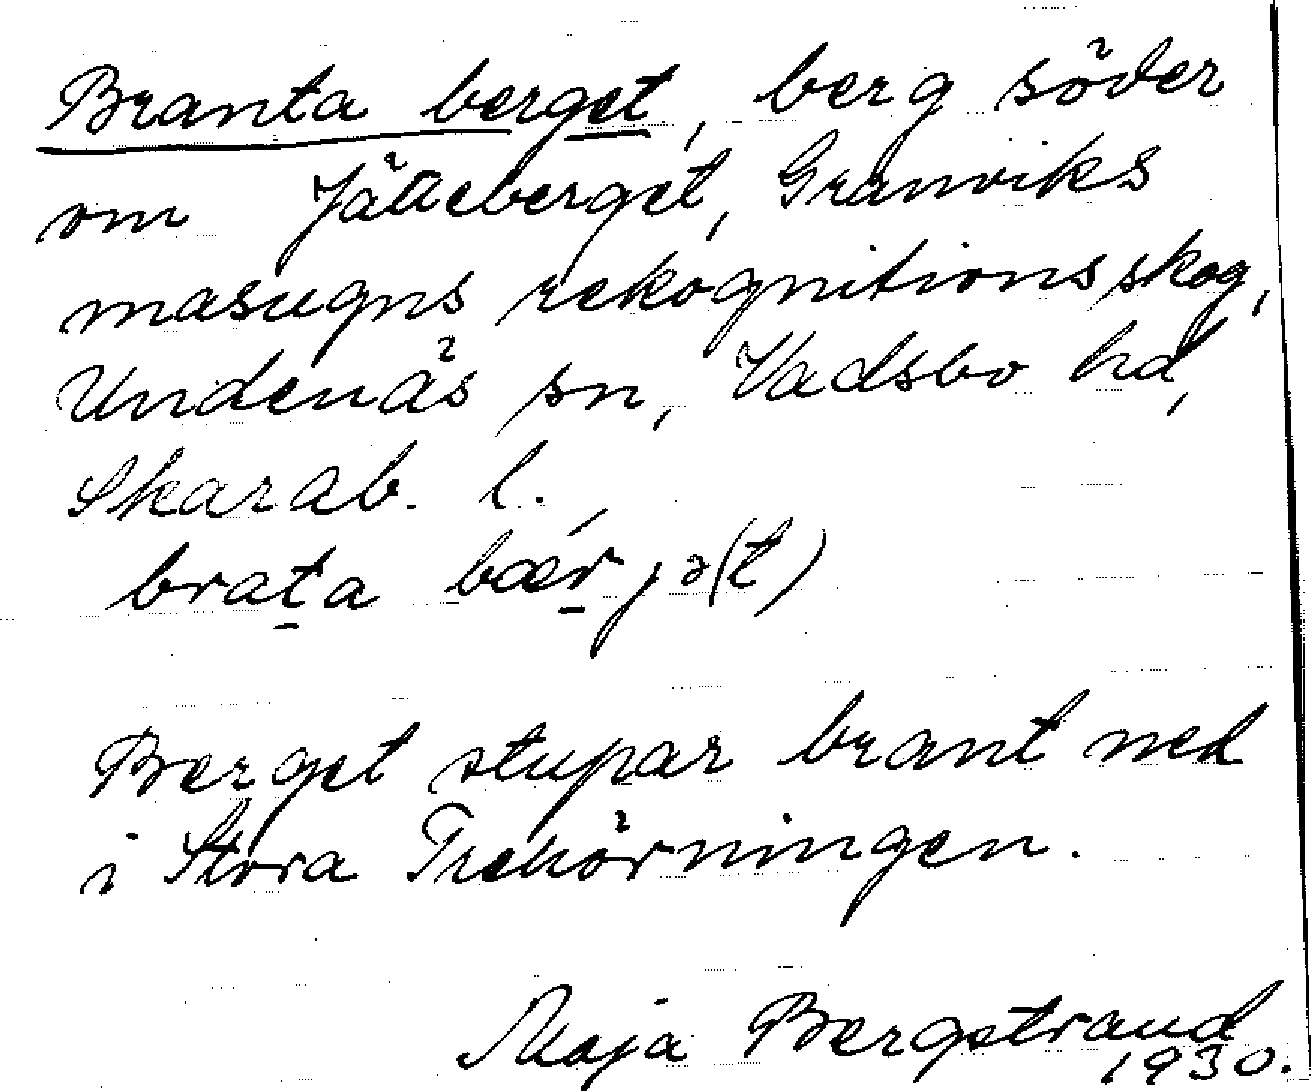 Branta berget, berg söder
om Jätteberget, Granviks
masugns rekognitionsskog,
Undenäs sn, Vadsbo hd,
Skarab. l.
brata bæŕjə(t)
Berget stupar brant ned
i Stora Trehörningen.
Maja Bergstrand
1930.